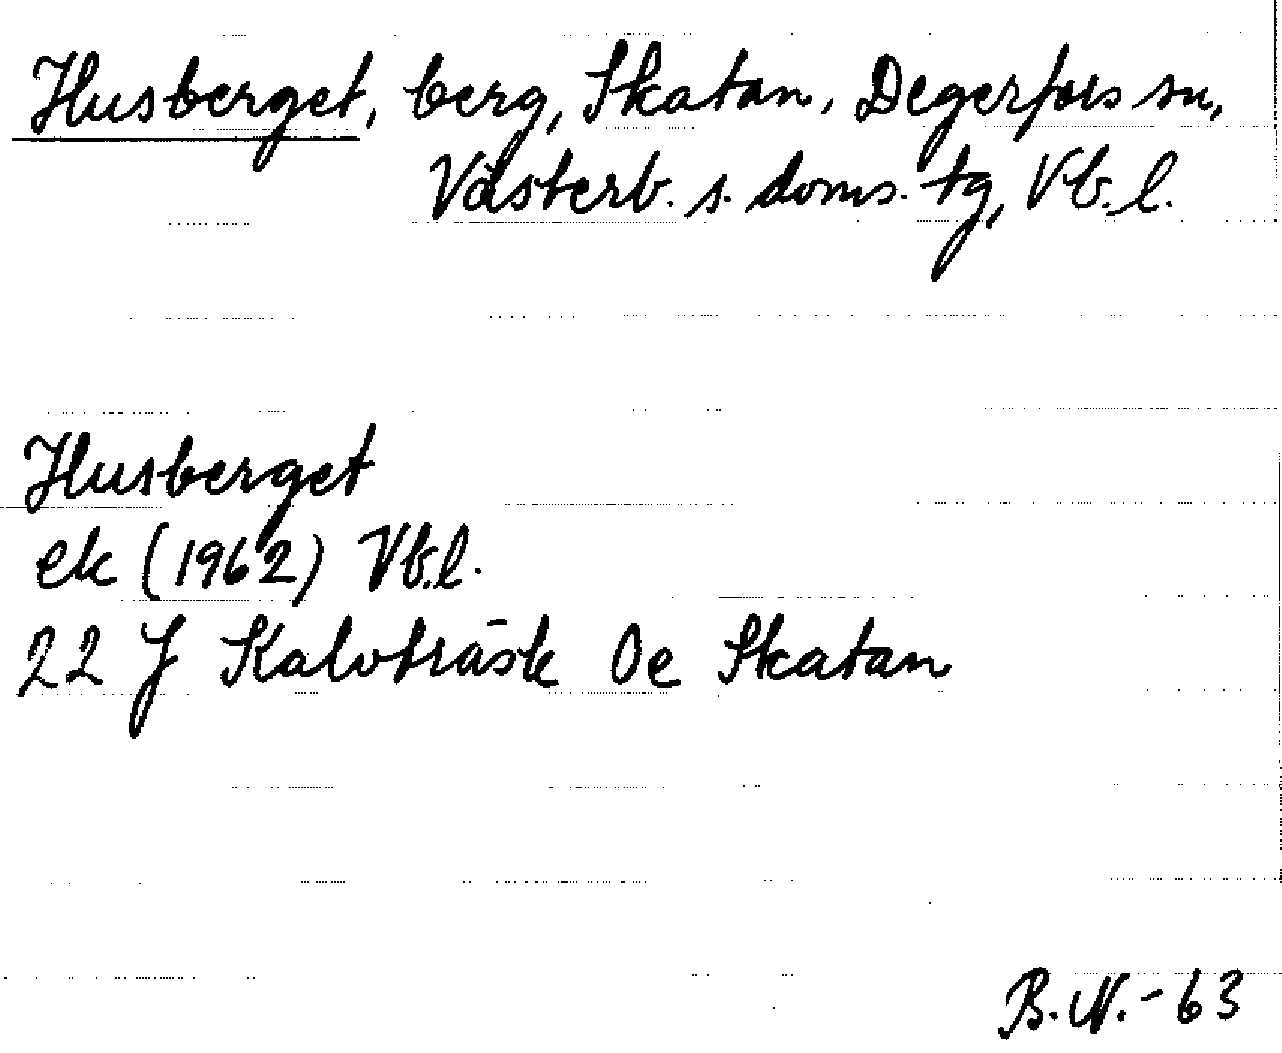 Husberget, berg, Skatan, Degerfors sn,
Västerb. s. doms. tg, Vb. l.
Husberget
ek (1962) Vb.l.
22 J Kalvträsk 0e Skatan
B.N.-63